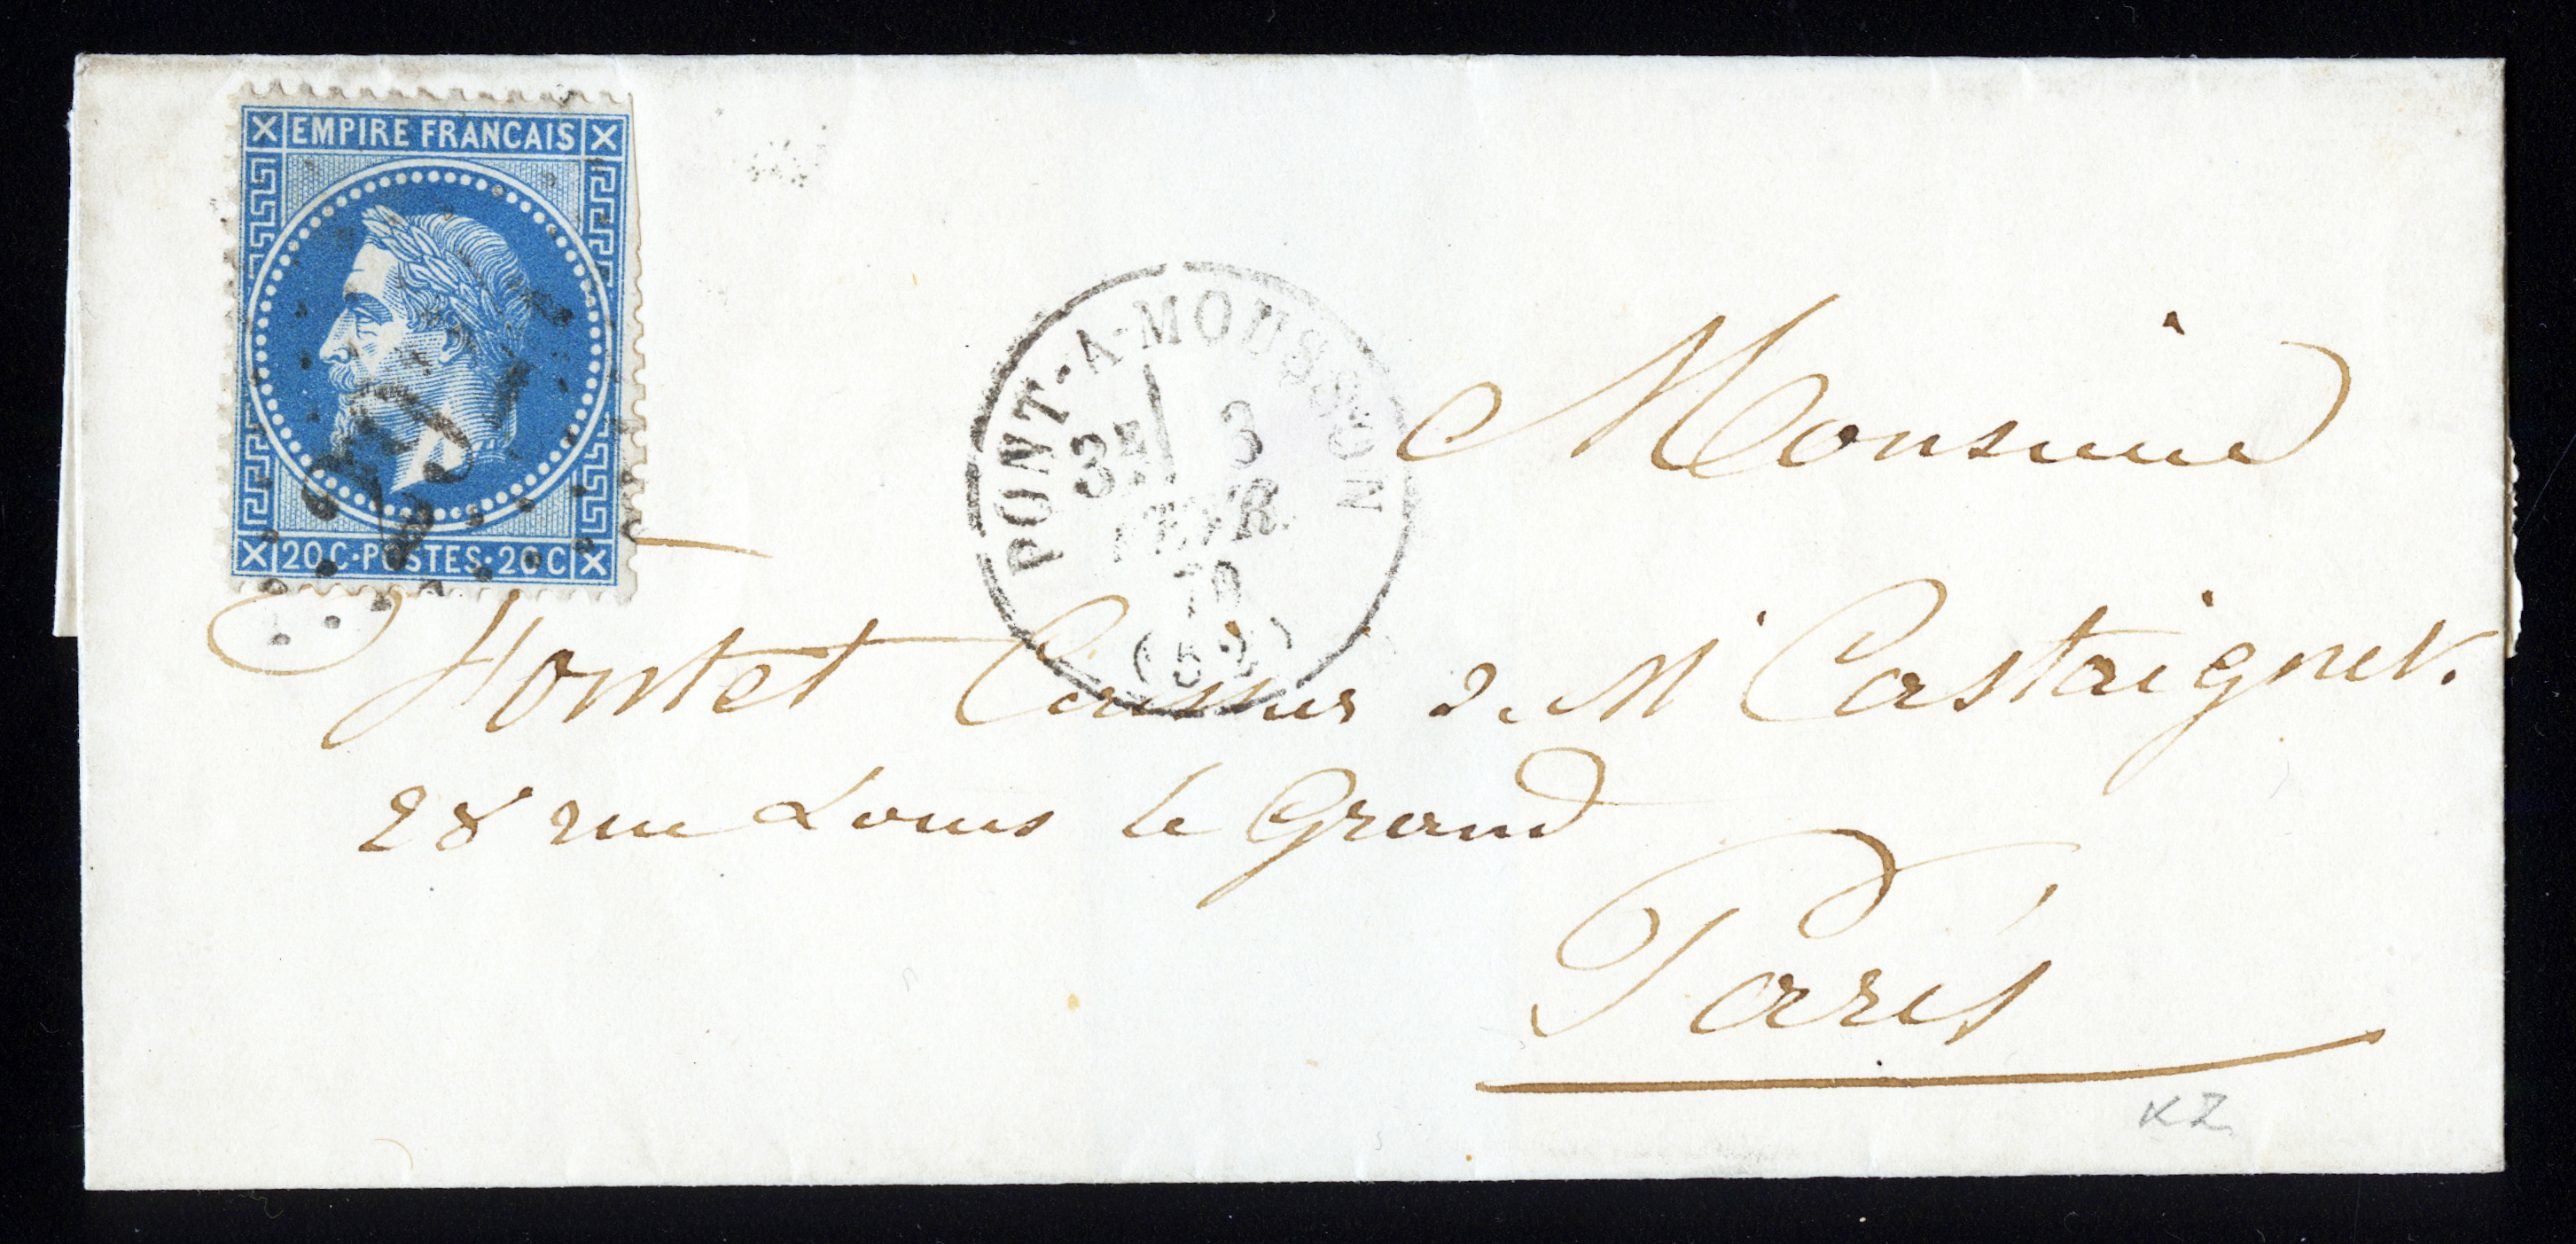 EMPIRE FRANCAIS
20C·POSTES·20C
PONT-A-MOUSSON
3E 3
FEVR.
70
(52)
Monsieur
Montet Caissier de Mr Castaignet.
28 rue Louis le Grand
Paris
KZ